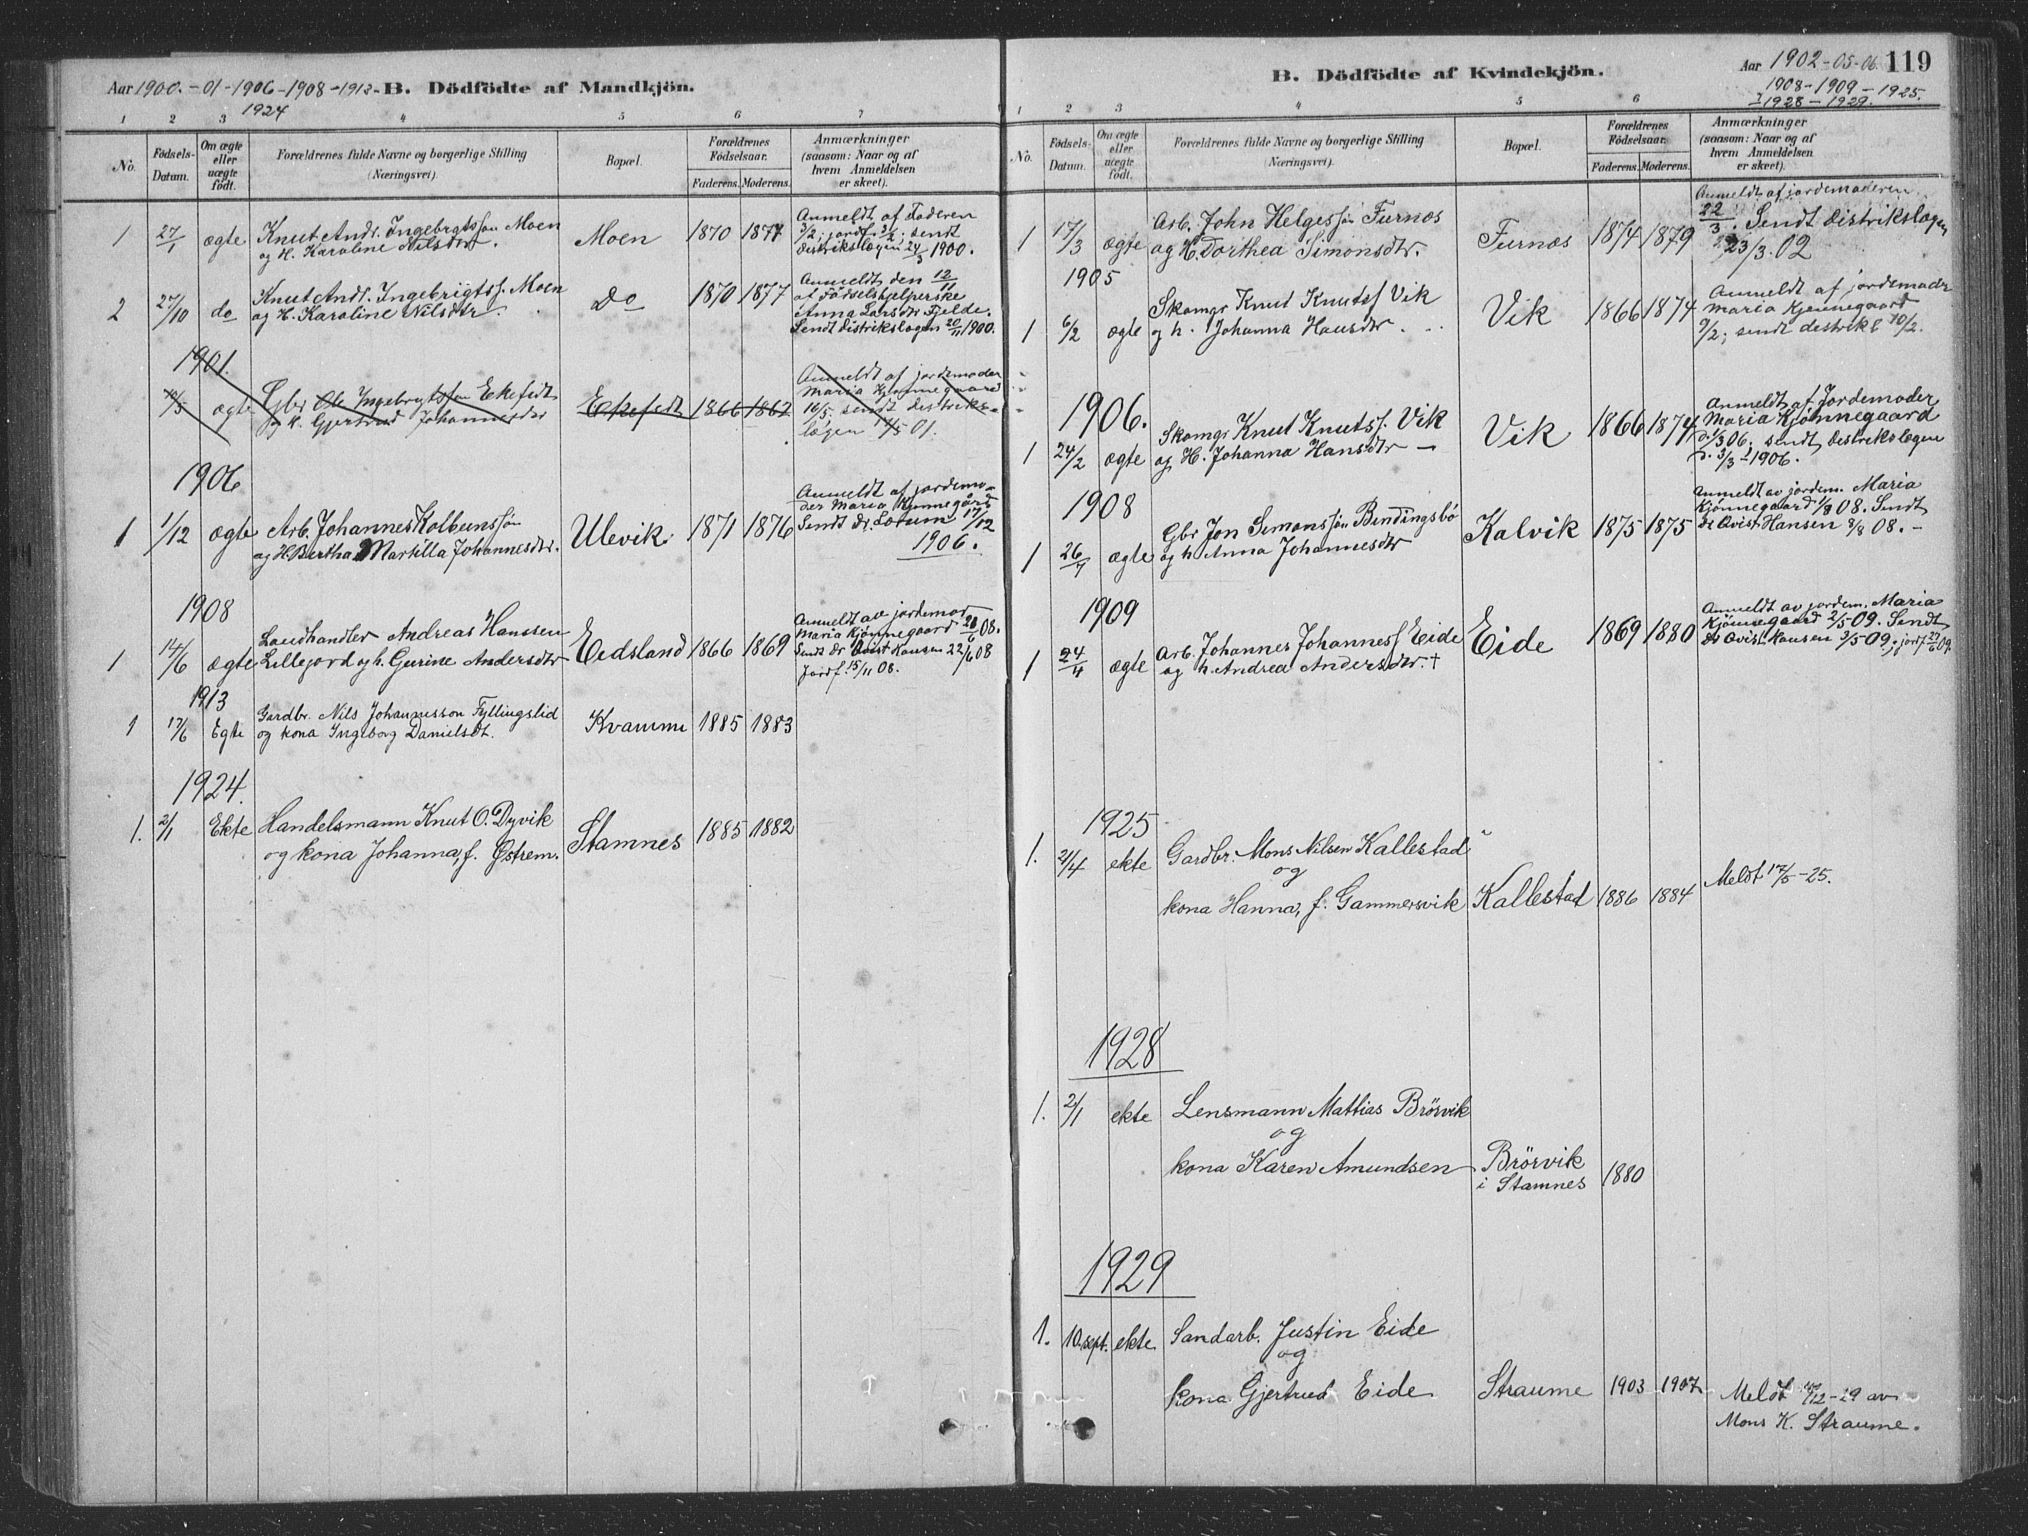 Aar 1900.-01-1906-1908-1913- B. Dödfödte af Mandkjön.
1924
1 2 3 4 5 6 7
No.
Födsels-Datum.
Om ægte eller uægte födt.
Forældrenes fulde Navne og borgerlige Stilling (Næringsvei).
Bopæl.
Forældrenes Födselsaar.
Faderens. Moderens.
Anmærkninger (saasom: Naar og af hvem Anmeldelsen er skeet).
1 27/1 ægte Knut Andr. Ingebrigtssøn Moen Moen 1870 1877 Anmeldt af Faderen
og H. Karoline Nilsdtr. 3/2; jordf. 3/2; sendt
distrikslægen 24/3 1900.
2 27/10 do Knut Andr. Ingebrigtss. Moen Do 1870 1877 Anmeldt den 12/11
og H. Karoline Nilsdtr. af Födselshjelperske
Anna Larsdtr Fjelde.
Sendt distrikslægen 1900.
1901.
ægte Gbr Ole Ingebrigtssøn Ekefedt Ekefedt 1866 1862 Anmeldt af jordemoder
og h. Gjertrud Johannesdtr Maria Kjønnegaard
16/5. sendt distriks-
lægen 01.
1906
1 1/12 ægte Arb. Johannes Kolbeinssøn Ulevik. 1871 1876 Anmeldt af jordemo-
og H. Bertha Martilla Johannesdtr. der Maria Kjønnegård
Sendt Dr. 17/12
1906.
1908
1 14/6 ægte Landhandler Andreas Hanssen Eidsland 1866 1869 Anmeldt av jordemor
Lillejord og h. Gurine Andersdtr Maria Kjønnegaard 08.
Sendt Dr Qvist Hansen 22/6 08
Jordf. 15/11 08.
1913
1 17/6 Egte Gardbr. Nils Johannesson Fyllingslid Kvamme 1885 1883
og kona Ingeborg Danielsdt.
1924.
1. 2/1 Ekte Handelsmann Knut O. Dyvik Stamnes 1885 1882
og kona Johanna, f. Østrem.
B. Dödfödte af Kvindekjön. Aar 1902-05-06. 119
1908-1909-1925.
1928-1929.
1 2 3 4 5 6
No.
Födsels-Datum.
Om ægte eller uægte födt.
Forældrenes fulde Navne og borgerlige Stilling (Næringsvei).
Bopæl.
Forældrenes Födselsaar.
Faderens. Moderens.
Anmærkninger (saasom: Naar og af hvem Anmeldelsen er skeet).
1 17/3 ægte Arb. John Helgessøn Furnes Furnes 1874 1879 Anmeldt af jordemoderen
og H. Dorthea Simonsdtr. 22/3. Sendt distrikslægen
23/3.02
1905
1 6/2 ægte Skomgr Knut Knutss Vik Vik 1866 1874 Anmeldt af jordemoder
og h. Johanna Hansdtr. Maria Kjønnegaard
9/2; sendt distriksl 10/2.
1906.
1 24/2 ægte Skomgr Knut Knutss. Vik Vik 1866 1874 Anmeldt af Jordemoder
og H. Johanna Hansdtr — Maria Kjønnegaard
/3 06. sendt distrikslægen
d. 3/3 1906.
1908
1 26/7 ægte Gbr Jon Simonssøn Bindingsbø Kalvik 1875 1875 Anmeldt av jordem. Maria
og h. Anna Johannesdtr Kjønnegaard 1/8 08. Sendt
Dr Qvist Hansen 8/8 08. -
1909
1 24/4 ægte Arb. Johannes Johanness Eide Eide 1869 1880 Anmeldt av jordem. Maria
og h. Andrea Andersdtr. † Kjønnegaard 2/5 09. Sendt
Dr Qvist Hansen 3/5 09; jordf 09
1925
1. 2/4 ekte Gardbr. Mons Nilsen Kallestad
og
kona Hanna, f. Gammersvik Kallestad 1886 1884 Meldt 17/5-25.
1928
1. 2/1 ekte Lensmann Mattias Brörvik
og
kona Karen Amundsen Brörvik
i Stamnes 1880
1929
1. 10 sept. ekte Sandarb. Justin Eide
og
kona Gjertrud Eide Straume 1903 1907 Meldt /12-29 av
Mons K. Straume.